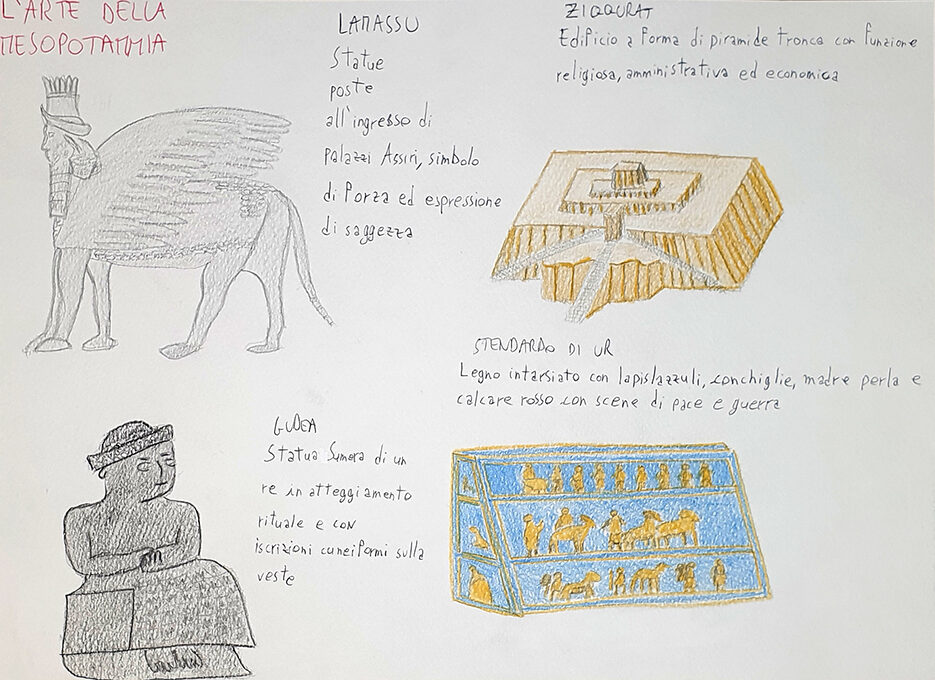 L'ARTE DELLA
MESOPOTAMMIA
LAMASSU
Statue
poste
all'ingresso di
palazzi Assiri, simbolo
di forza ed espressione
di saggezza
ZIQQURAT
Edificio a forma di piramide tronca con funzione
religiosa, amministrativa ed economica
STENDARDO DI UR
Legno intarsiato con lapislazzuli, conchiglie, madre perla e
calcare rosso con scene di pace e guerra
GUDEA
Statua Sumera di un
re in atteggiamento
rituale e con
iscrizioni cuneiformi sulla
veste